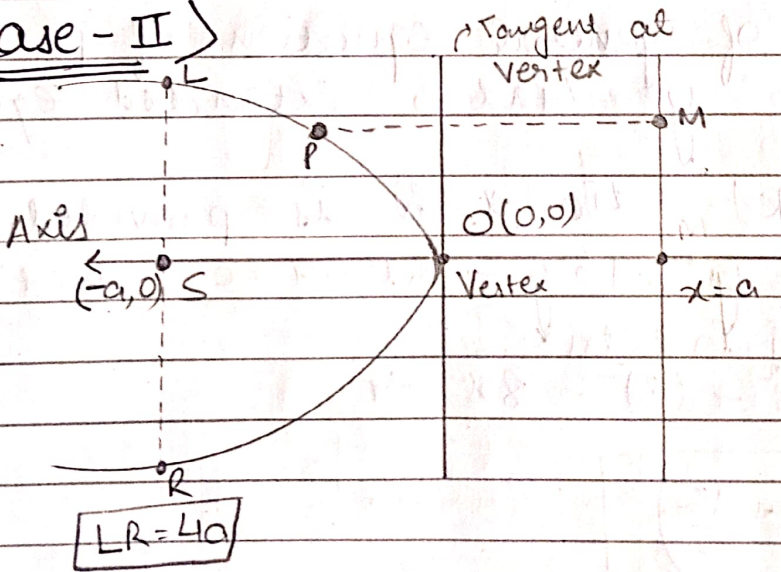 ase - II >
Tangent at
Vertex
L
P
M
Axis
O(0,0)
(-a,0) S
Vertex
x=a
R
LR=4a